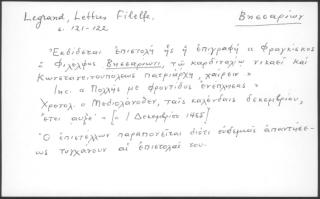 Legrand, Lettres Filelfe.
Βησσαρίων
σ. 121-122
"Ἐκδίδεται ἐπιστολὴ ἧς ἡ ἐπιγραφὴ ὁ Φραγκίσκος
ὁ Φιλέλφος Βησσαρίωνι, τῷ καρδιναλίῳ νικαεῖ καὶ
Κωνσταντινουπόλεως πατριάρχῃ, χαίρειν"
Inc. ὁ Πολλῆς με φροντίδος ἐνέπλησας"
Χρονολ. ὁ Μεδιόλανοθεν, ταῖς καλένδαις δεκεμβρίου,
ἔτει αυξε' [= 1 Δεκεμβρίου 1465]
Ὁ ἐπιστέλλων παραπονεῖται διότι οὐδεμιᾶς ἀπαντήσε-
ως τυγχάνουν αἱ ἐπιστολαί του.